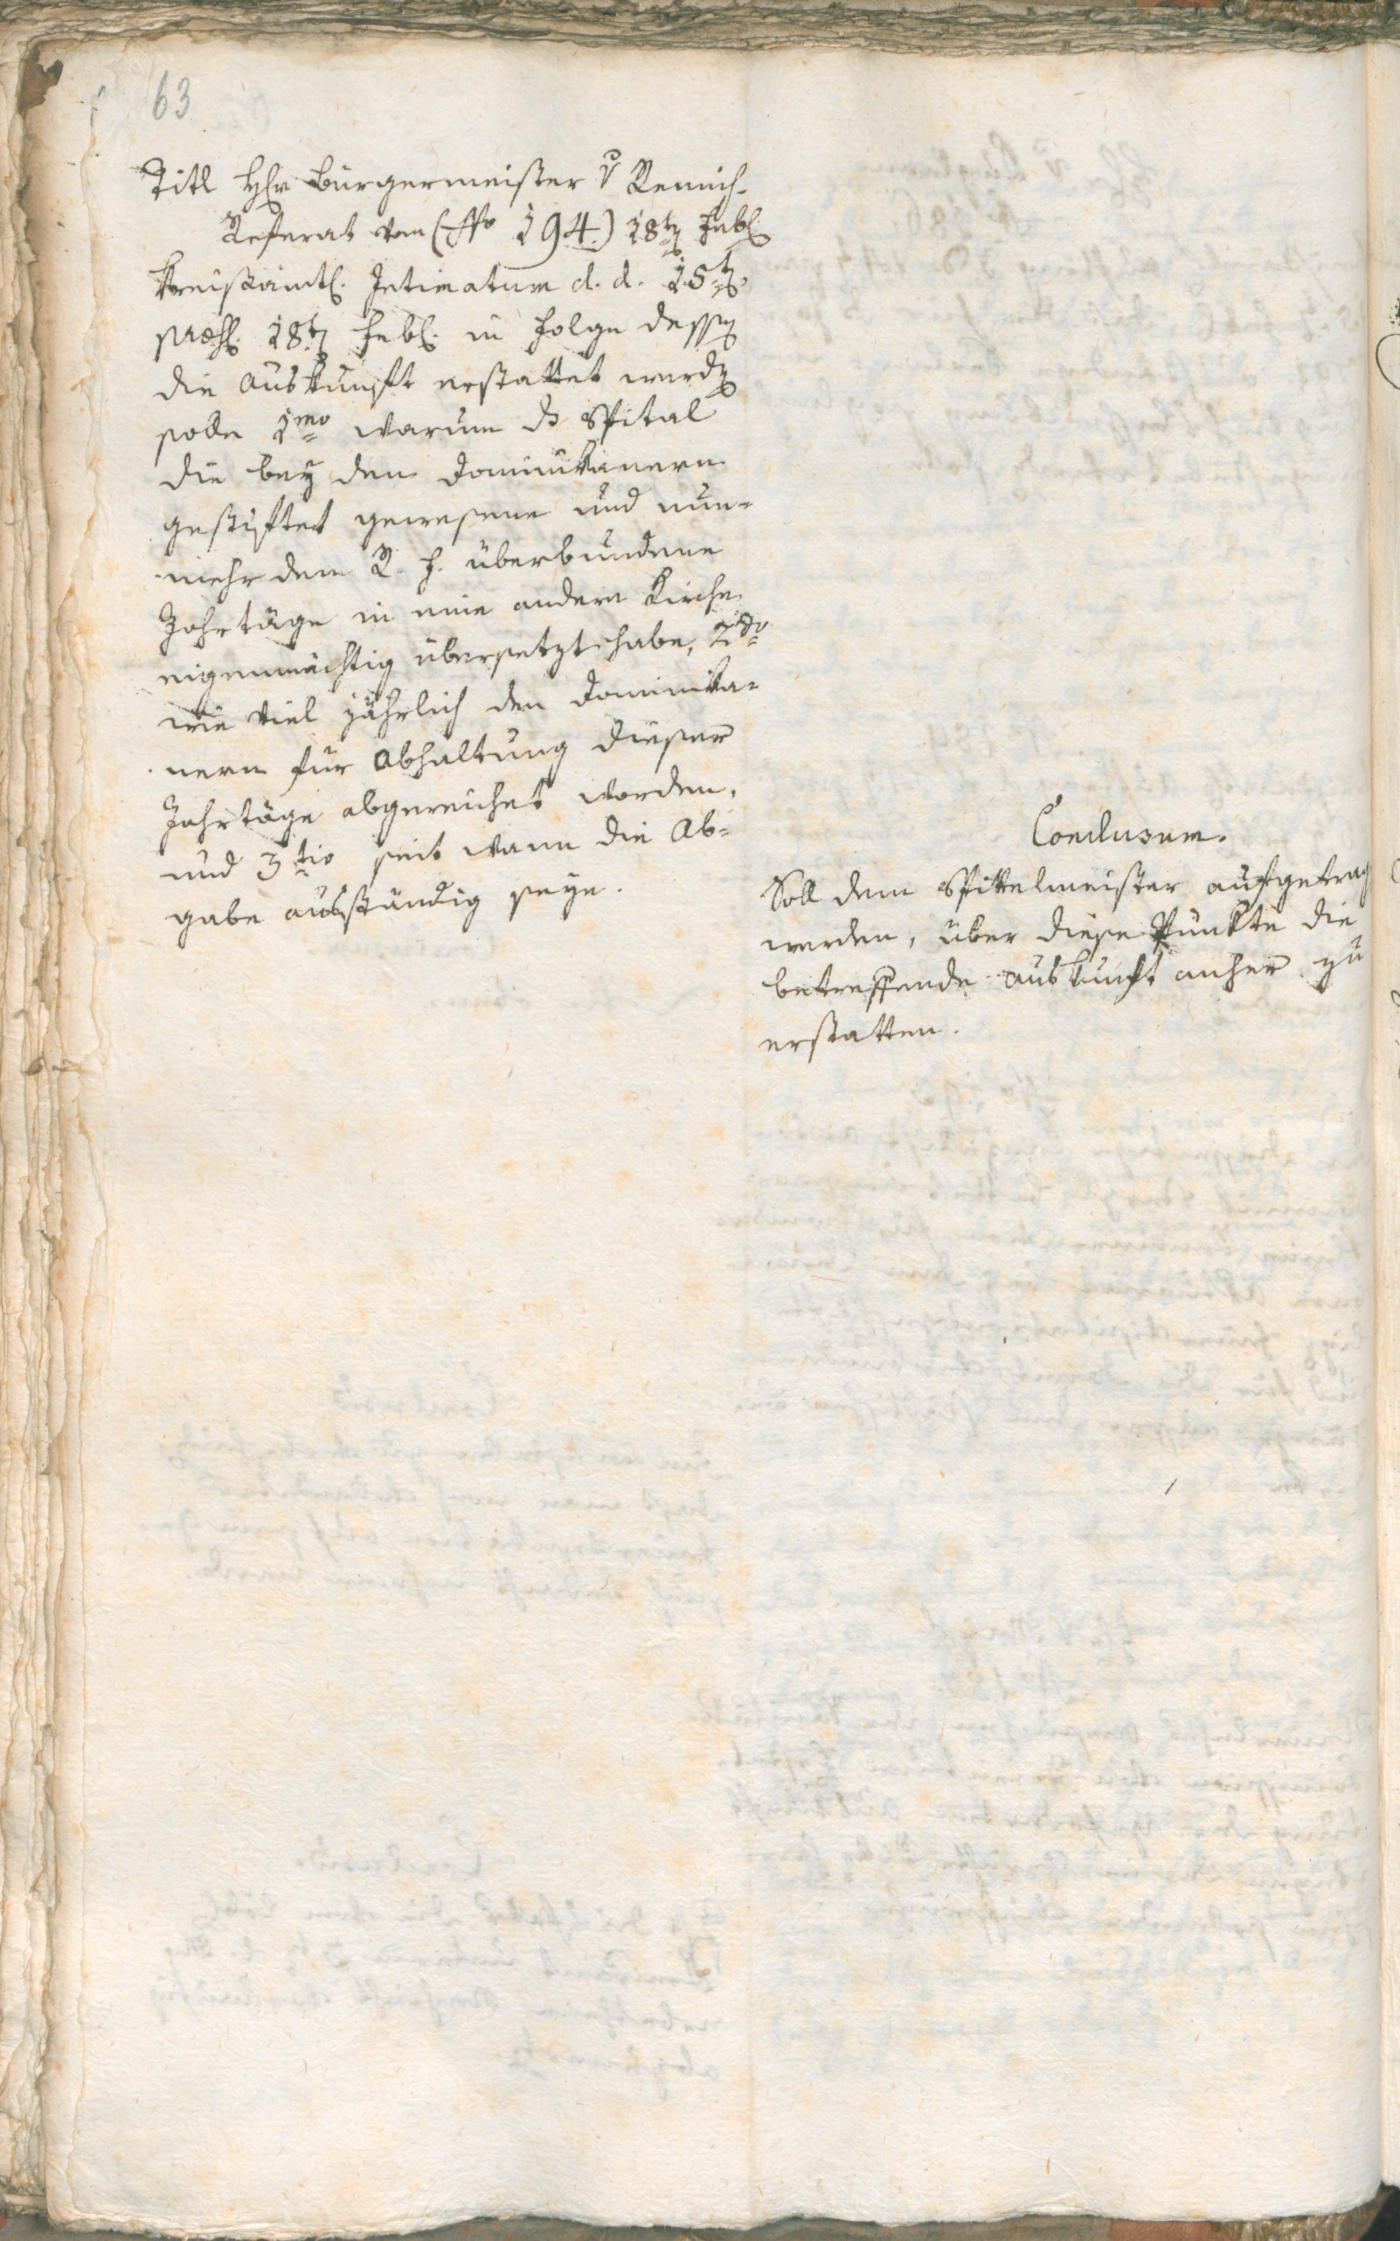 63
Titl H̄hr Burgermeister v̊ Remich.
Referat vom (No 194.) 18tn Febl
Kreißämtl. Intimatum d. d. 15tn
praes. 18tn Febl. in Folge dessen
die Auskunft erstattet werden
solle 1mo warum ds Spital
die bey den Dominikanern
gestiftet gewesene und nun-
mehr dem R. F. überbundene
Jahrtäge in eine andere Kirche
eigenmächtig übersetzt habe, 2do
wie viel jährlich den Dominika-
nern für Abhaltung dieser
Jahrtäge abgereichet worden,
und 3tio seit wann die Ab-
gabe ausständig seye.
Conclusum.
Soll dem Spittelmeister aufgetrag
werden, über diese Punkte die
betreffende Auskunft anher zu
erstatten.